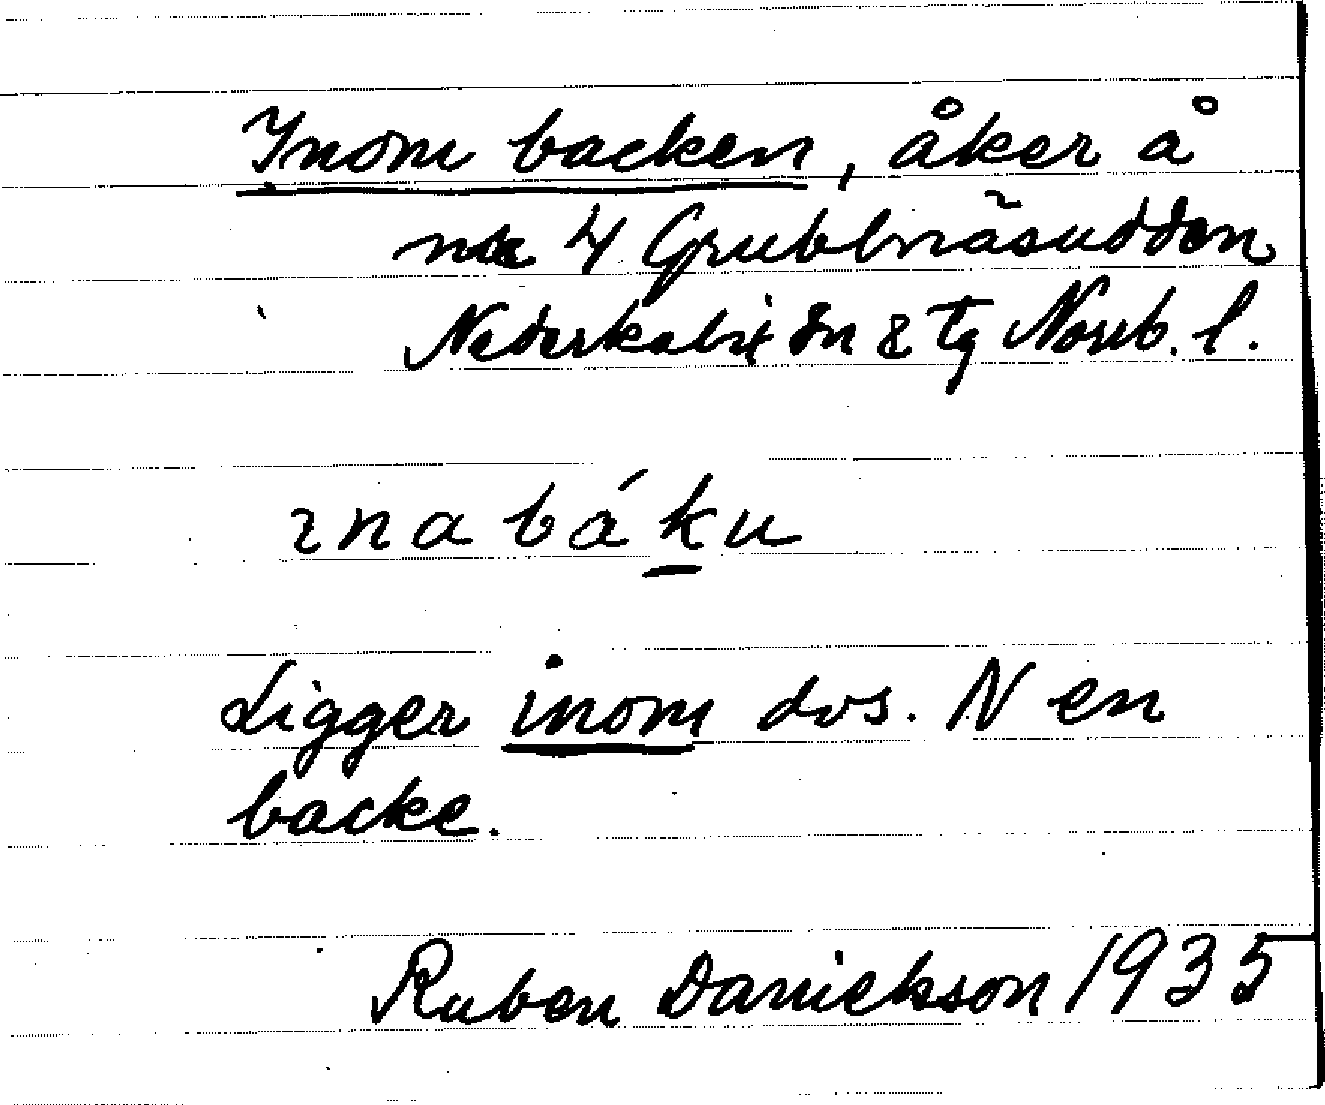 Inom backen, åker å
nr 4 Grubbnäsudden
Nederkalix sn & tg Norrb. l.
ɿnabáku
Ligger inom dvs. N en
backe.
Ruben Danielsson 1935